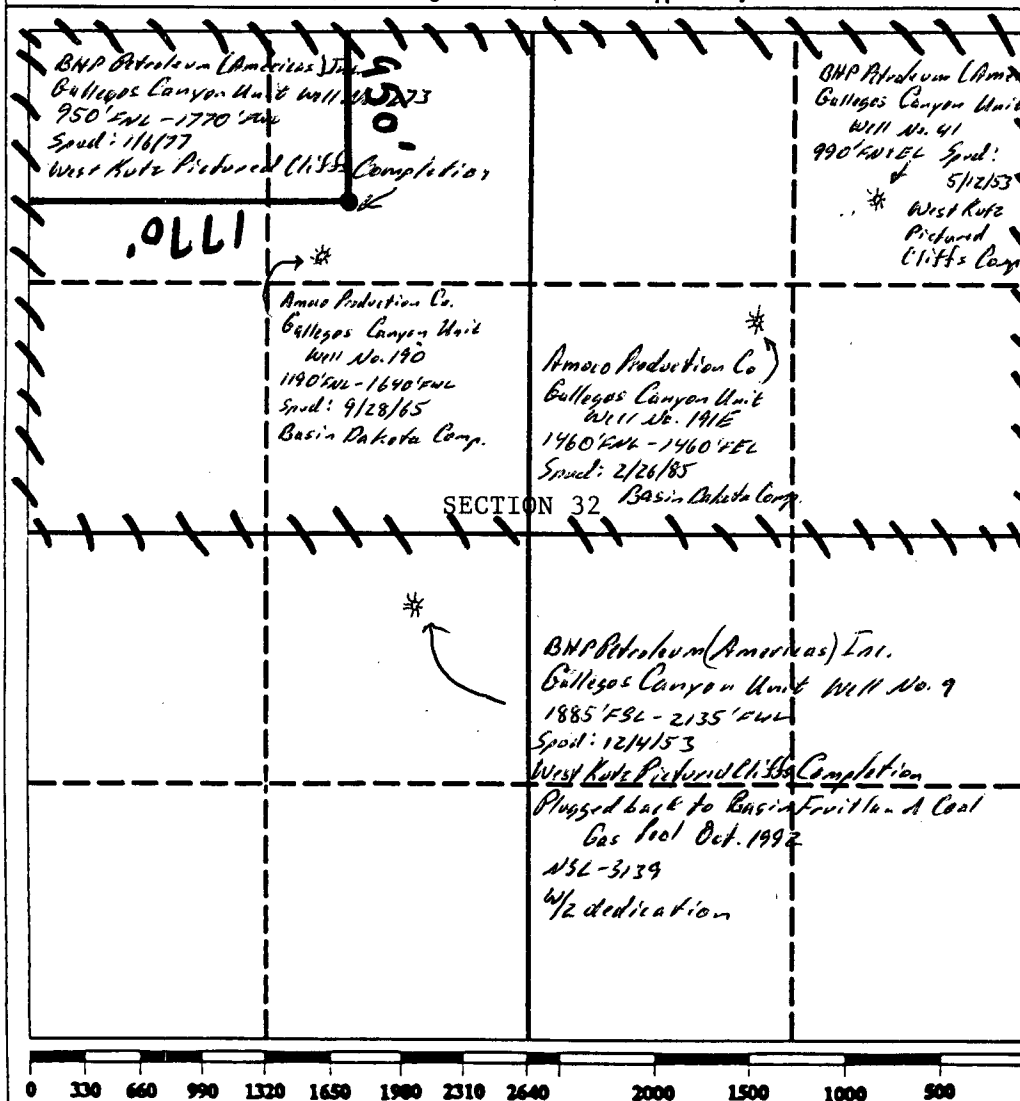 BHP Petroleum (Americas) Inc.
Gallegos Canyon Unit Well No. 273
950' FNL - 1770' FWL
Spud: 1/6/77
West Kutz Pictured Cliffs Completion
950'
1770'
BHP Petroleum (Ame
Gallegos Canyon Unit
Well No. 41
990' FN&EL Spud:
5/12/53
West Kutz
Pictured
Cliffs Comp
Amoco Production Co.
Gallegos Canyon Unit
Well No. 190
1190' FNL - 1640' FWL
Spud: 9/28/65
Basin Dakota Comp.
Amoco Production Co
Gallegos Canyon Unit
Well No. 191E
1460' FNL - 1460' FEL
Spud: 2/26/85
Basin Dakota Comp.
SECTION 32
BHP Petroleum (Americas) Inc.
Gallegos Canyon Unit Well No. 9
1885' FSL - 2135' FWL
Spud: 12/4/53
West Kutz Pictured Cliffs Completion
Plugged back to Basin Fruitland Coal
Gas Pool Oct. 1992
NSL-3139
W/2 dedication
0 330 660 990 1320 1650 1980 2310 2640 2000 1500 1000 500